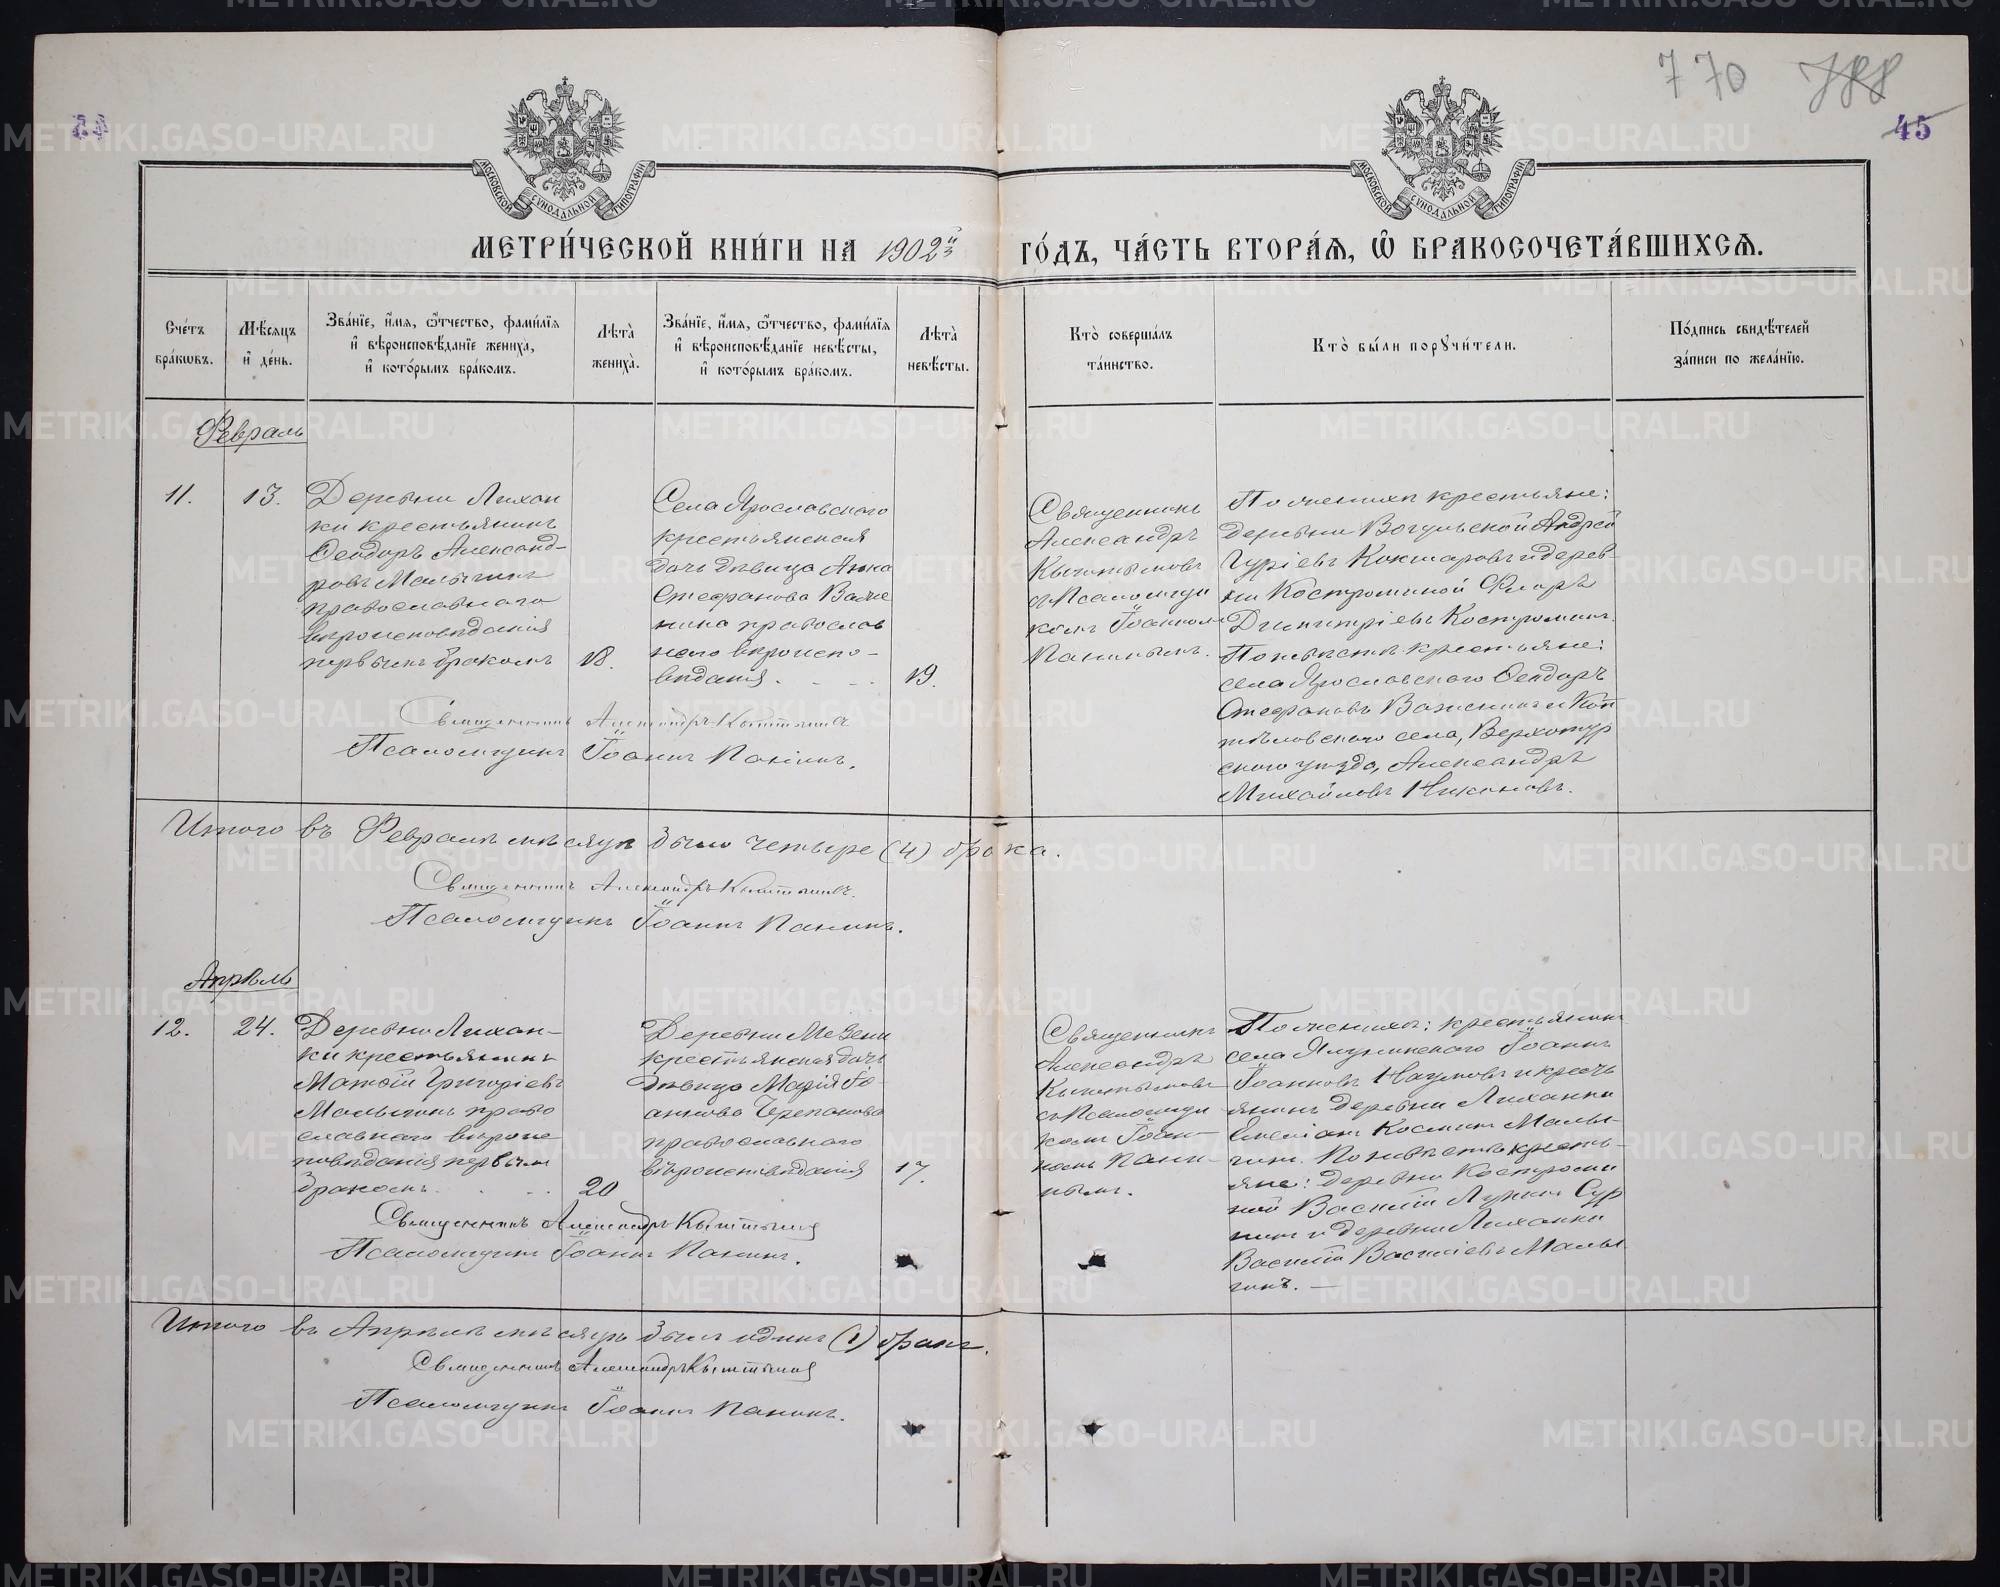 770 788
44
45
МОСКОВСКОЙ СѴНОДАЛЬНОЙ ТИПОГРАФІИ
МОСКОВСКОЙ СѴНОДАЛЬНОЙ ТИПОГРАФІИ
МЕТРИ́ЧЕСКОЙ КНИ́ГИ НА 1902й
ГО́ДЪ, ЧА́СТЬ ВТОРА́Ѧ, Ѿ БРАКОСОЧЕТА́ВШИХСѦ.
Сче́тъ бра́кѡвъ.
Мѣ́сѧцъ и҆ де́нь.
Зва́нїе, и҆́мѧ, ѻ҆́тчество, фами́лїѧ и҆ вѣроисповѣ́данїе жениха̀, и҆ кото́рымъ бра́комъ.
Лѣ́та̀ жениха̀.
Зва́нїе, и҆́мѧ, ѻ҆́тчество, фами́лїѧ и҆ вѣроисповѣ́данїе невѣ́сты, и҆ кото́рымъ бра́комъ.
Лѣ́та̀ невѣ́сты.
Кто̀ соверша́лъ та́инство.
Кто̀ бы́ли порꙋчи́тели.
По́дпись свидѣ́телей за́писи по жела́нїю.
Февраль
11.
13.
Деревни Лихан
ки крестьянинъ
Ѳеодоръ Александ-
ровъ Малыгинъ
православнаго
вѣроисповѣданія
первымъ бракомъ
18.
Села Ярославскаго
крестьянская
дочь дѣвица Анна
Стефанова Важе
нина православ
наго вѣроиспо-
вѣданія.
19.
Священникъ
Александръ
Кыштымовъ
съ Псаломщи
комъ Іоанномъ
Панинымъ.
По женихѣ крестьяне:
деревни Вогульской Андрей
Гуріевъ Кокшаровъ и дерев-
ни Костроминой Флоръ
Димитріевъ Костроминъ.
По невѣстѣ крестьяне:
села Ярославскаго Ѳеодоръ
Стефановъ Важенинъ и Коп
тѣловскаго села, Верхотур
скаго уѣзда, Александръ
Михайловъ Никоновъ.
Священникъ Александръ Кыштымовъ
Псаломщикъ Іоаннъ Панинъ.
Итого въ Февралѣ мѣсяцѣ было четыре (4) брака.
Священникъ Александръ Кыштымовъ.
Псаломщикъ Іоаннъ Панинъ.
Апрѣль
12.
24.
Деревни Лихан-
ки крестьянинъ
Матѳій Григоріевъ
Малыгинъ право
славнаго вѣроис
повѣданія первымъ
бракомъ.
20
Деревни Мезени
крестьянская дочь
дѣвица Марія Іо-
аннова Черепанова
православнаго
вѣроисповѣданія
17.
Священникъ
Александръ
Кыштымовъ
съ Псаломщи
комъ Іоан-
номъ Пани-
нымъ.
По женихѣ: крестьянинъ
села Ялунинскаго Іоаннъ
Іоанновъ Наумовъ и крест
янинъ деревни Лиханки
Косминъ Малы-
гинъ. По невѣстѣ крест-
яне: деревни Костроми
ной Василій Лукинъ Сур
нинъ и деревни Лиханки
Василій Василіевъ Малы
гинъ. —
Священникъ Александръ Кыштымовъ
Псаломщикъ Іоаннъ Панинъ.
Итого въ Апрѣлѣ мѣсяцѣ былъ одинъ (1) бракъ.
Священникъ Александръ Кыштымовъ
Псаломщикъ Іоаннъ Панинъ.
METRIKI.GASO-URAL.RU